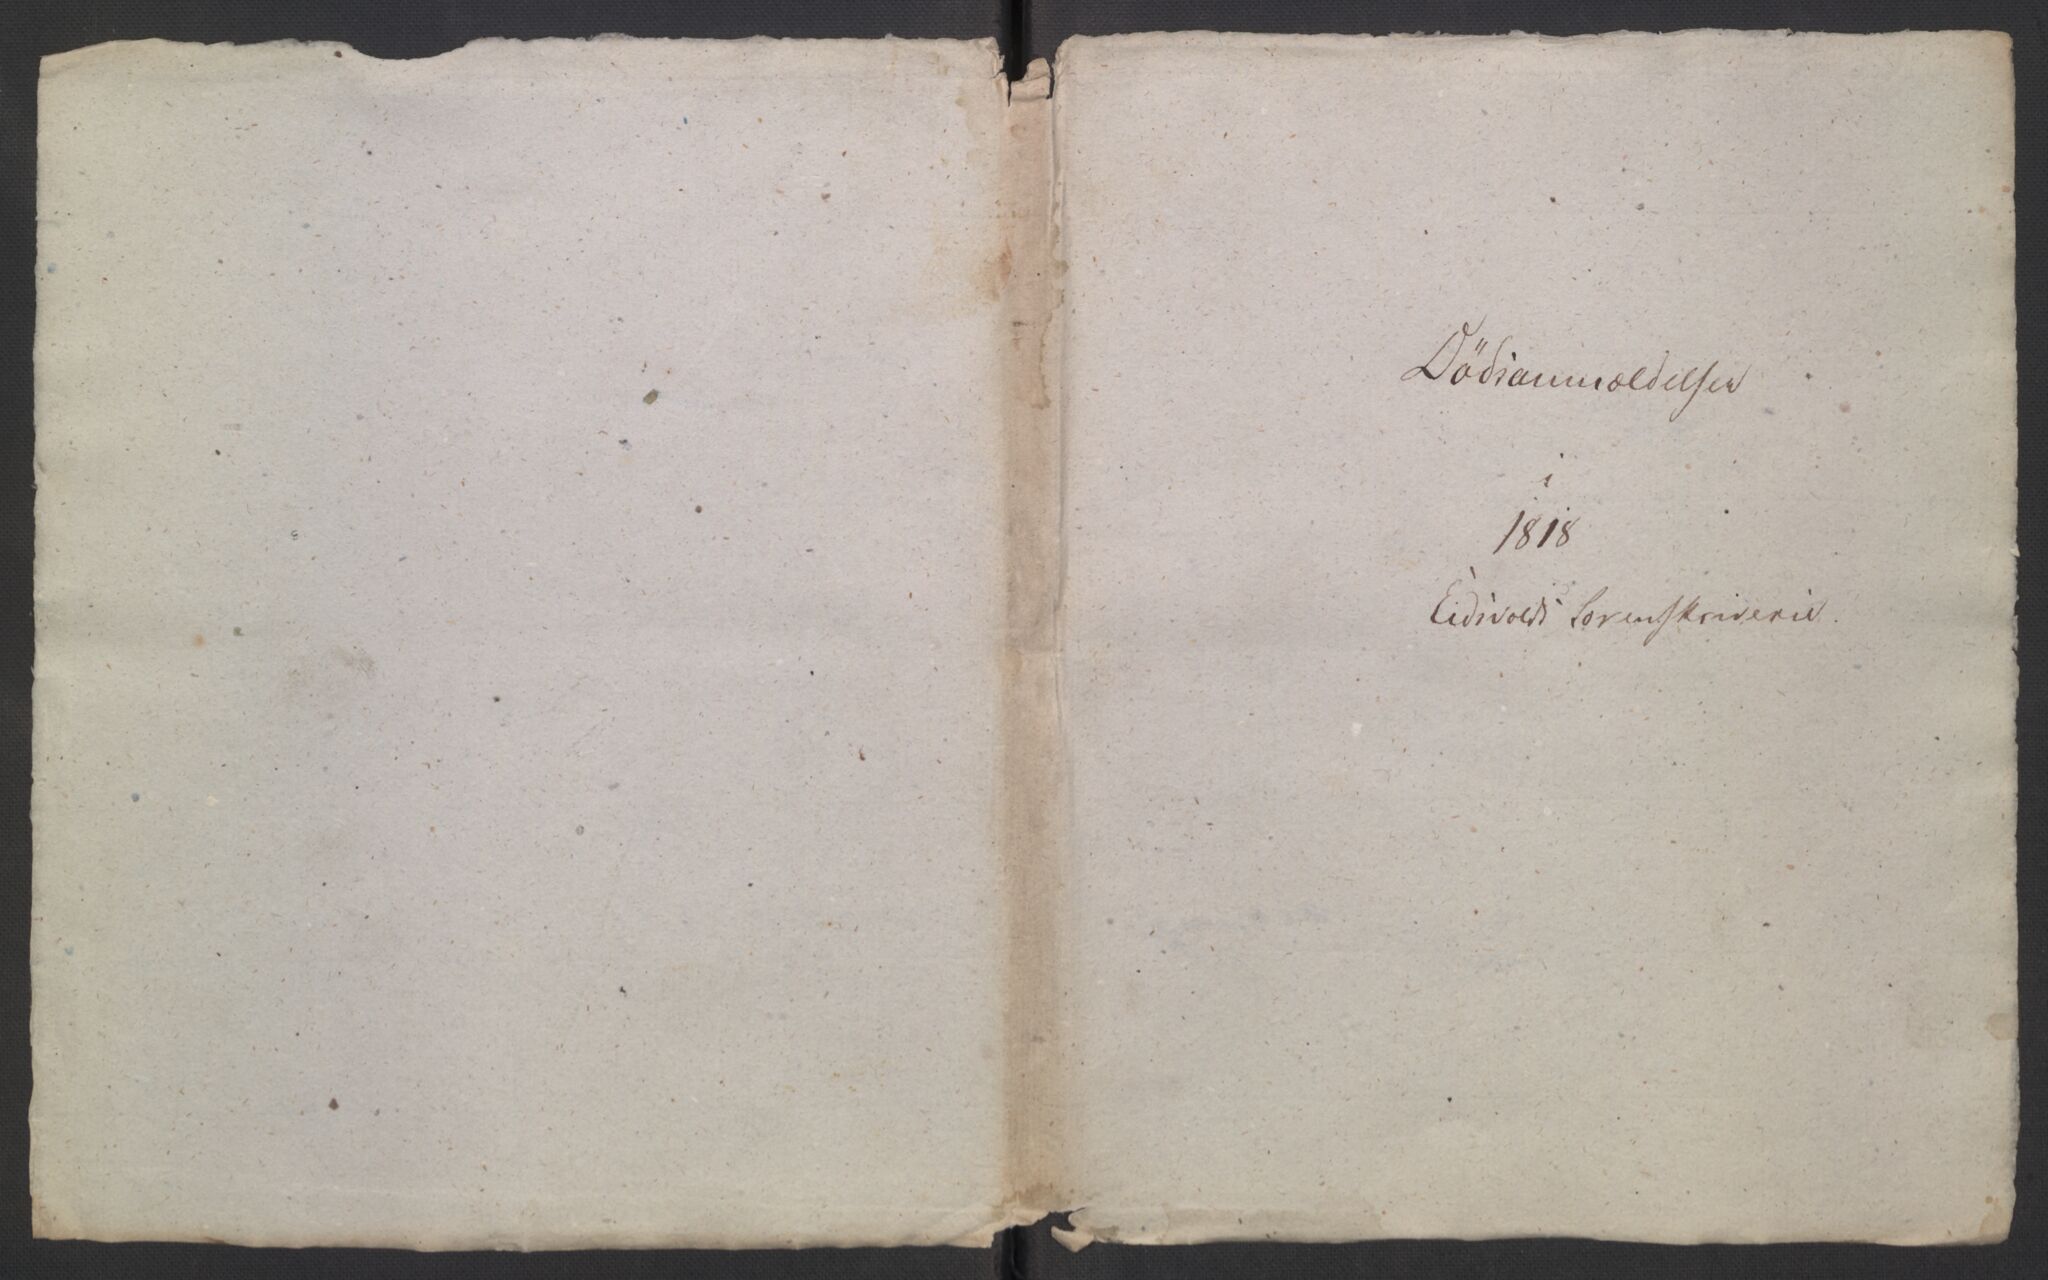 Dödsanmældelser
i
1818
Eidsvolds Sorenskriverie.